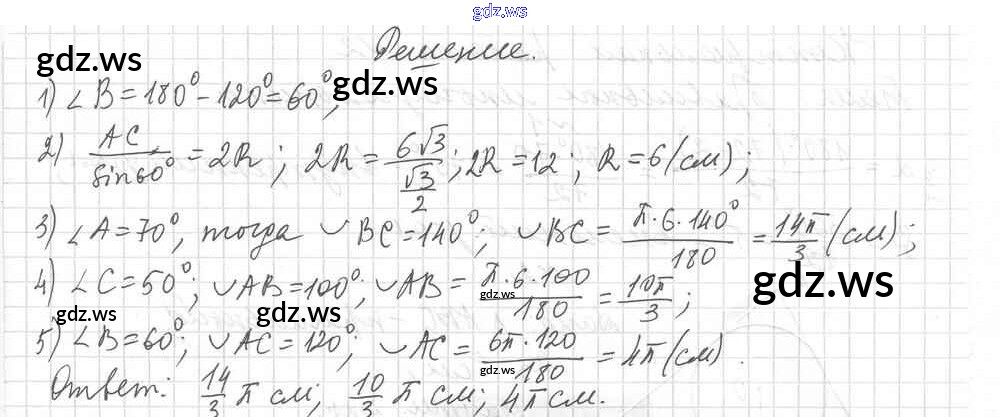 gdz.ws
Решение.
gdz.ws
gdz.ws
1) ∠B = 180° - 120° = 60°,
2) AC/sin60° = 2R; 2R = 6√3/(√3/2); 2R = 12; R = 6 (см);
3) ∠A = 70°, тогда ∪ BC = 140°; ∪ BC = π·6·140°/180 = 14π/3 (см);
gdz.ws
4) ∠C = 50°; ∪AB = 100°; ∪ AB = π·6·100/180 = 10π/3;
gdz.ws
gdz.ws
gdz.ws
5) ∠B = 60°; ∪ AC = 120°; ∪ AC = 6π·120/180 = 4π (см).
gdz.ws
Ответ: 14/3 π см; 10/3 π см; 4π см.